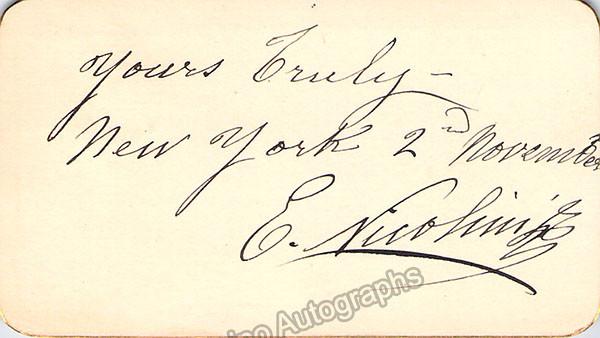 Yours Truly –
New York 2nd November
E. Nicolini
ino Autographs